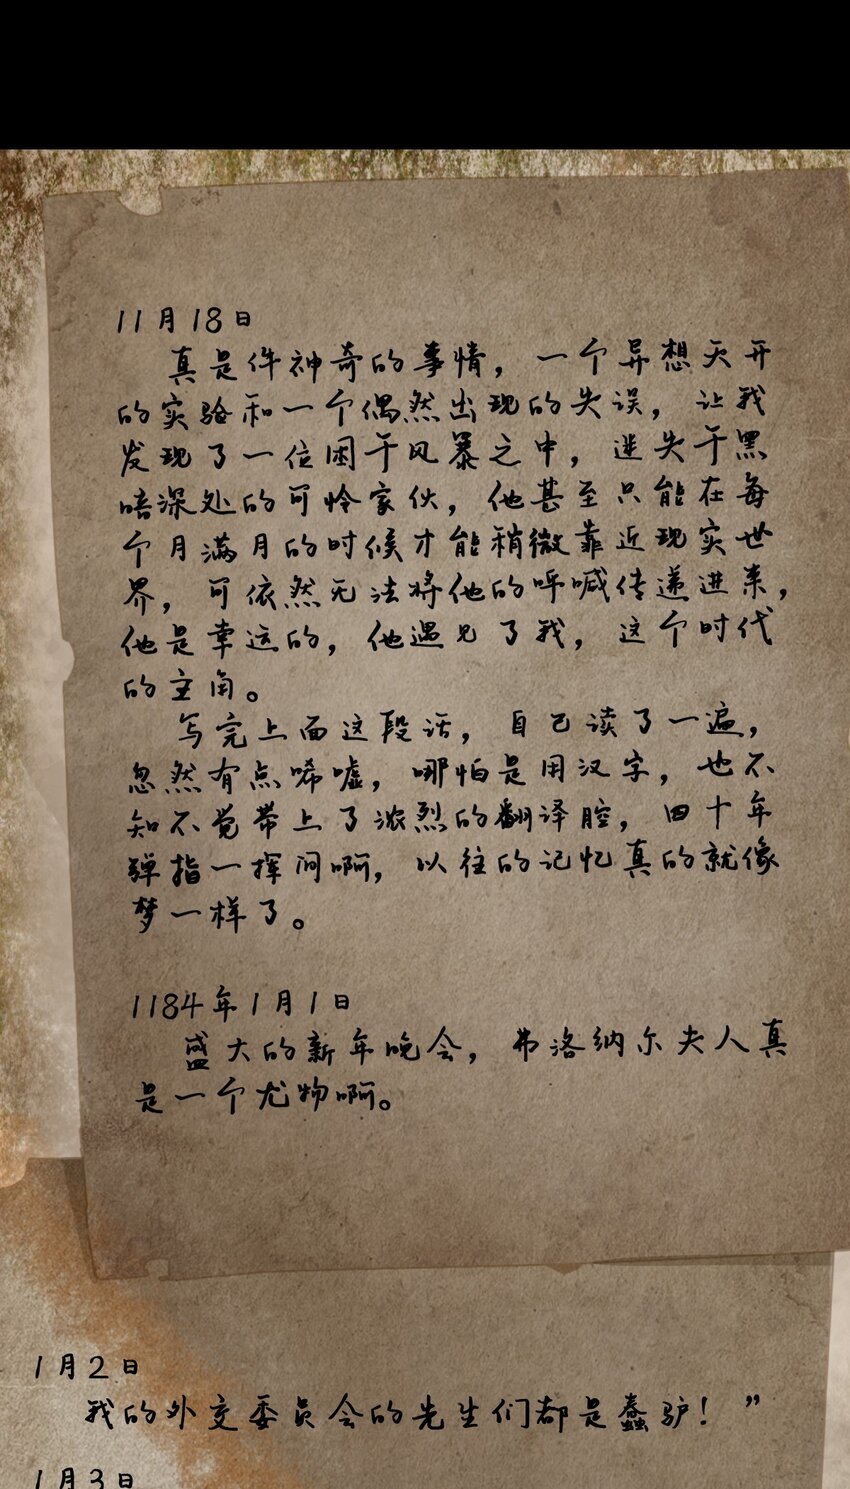 11月18日
真是件神奇的事情，一个异想天开
的实验和一个偶然出现的失误，让我
发现了一位困于风暴之中，迷失于黑
暗深处的可怜家伙，他甚至只能在每
个月满月的时候才能稍微靠近现实世
界，可依然无法将他的呼喊传递进来，
他是幸运的，他遇见了我，这个时代
的主角。
写完上面这段话，自己读了一遍，
忽然有点唏嘘，哪怕是用汉字，也不
知不觉带上了浓烈的翻译腔，四十年
弹指一挥间啊，以往的记忆真的就像
梦一样了。
1184年1月1日
盛大的新年晚会，弗洛纳尔夫人真
是一个尤物啊。
1月2日
我的外交委员会的先生们都是蠢驴！”
1月3日